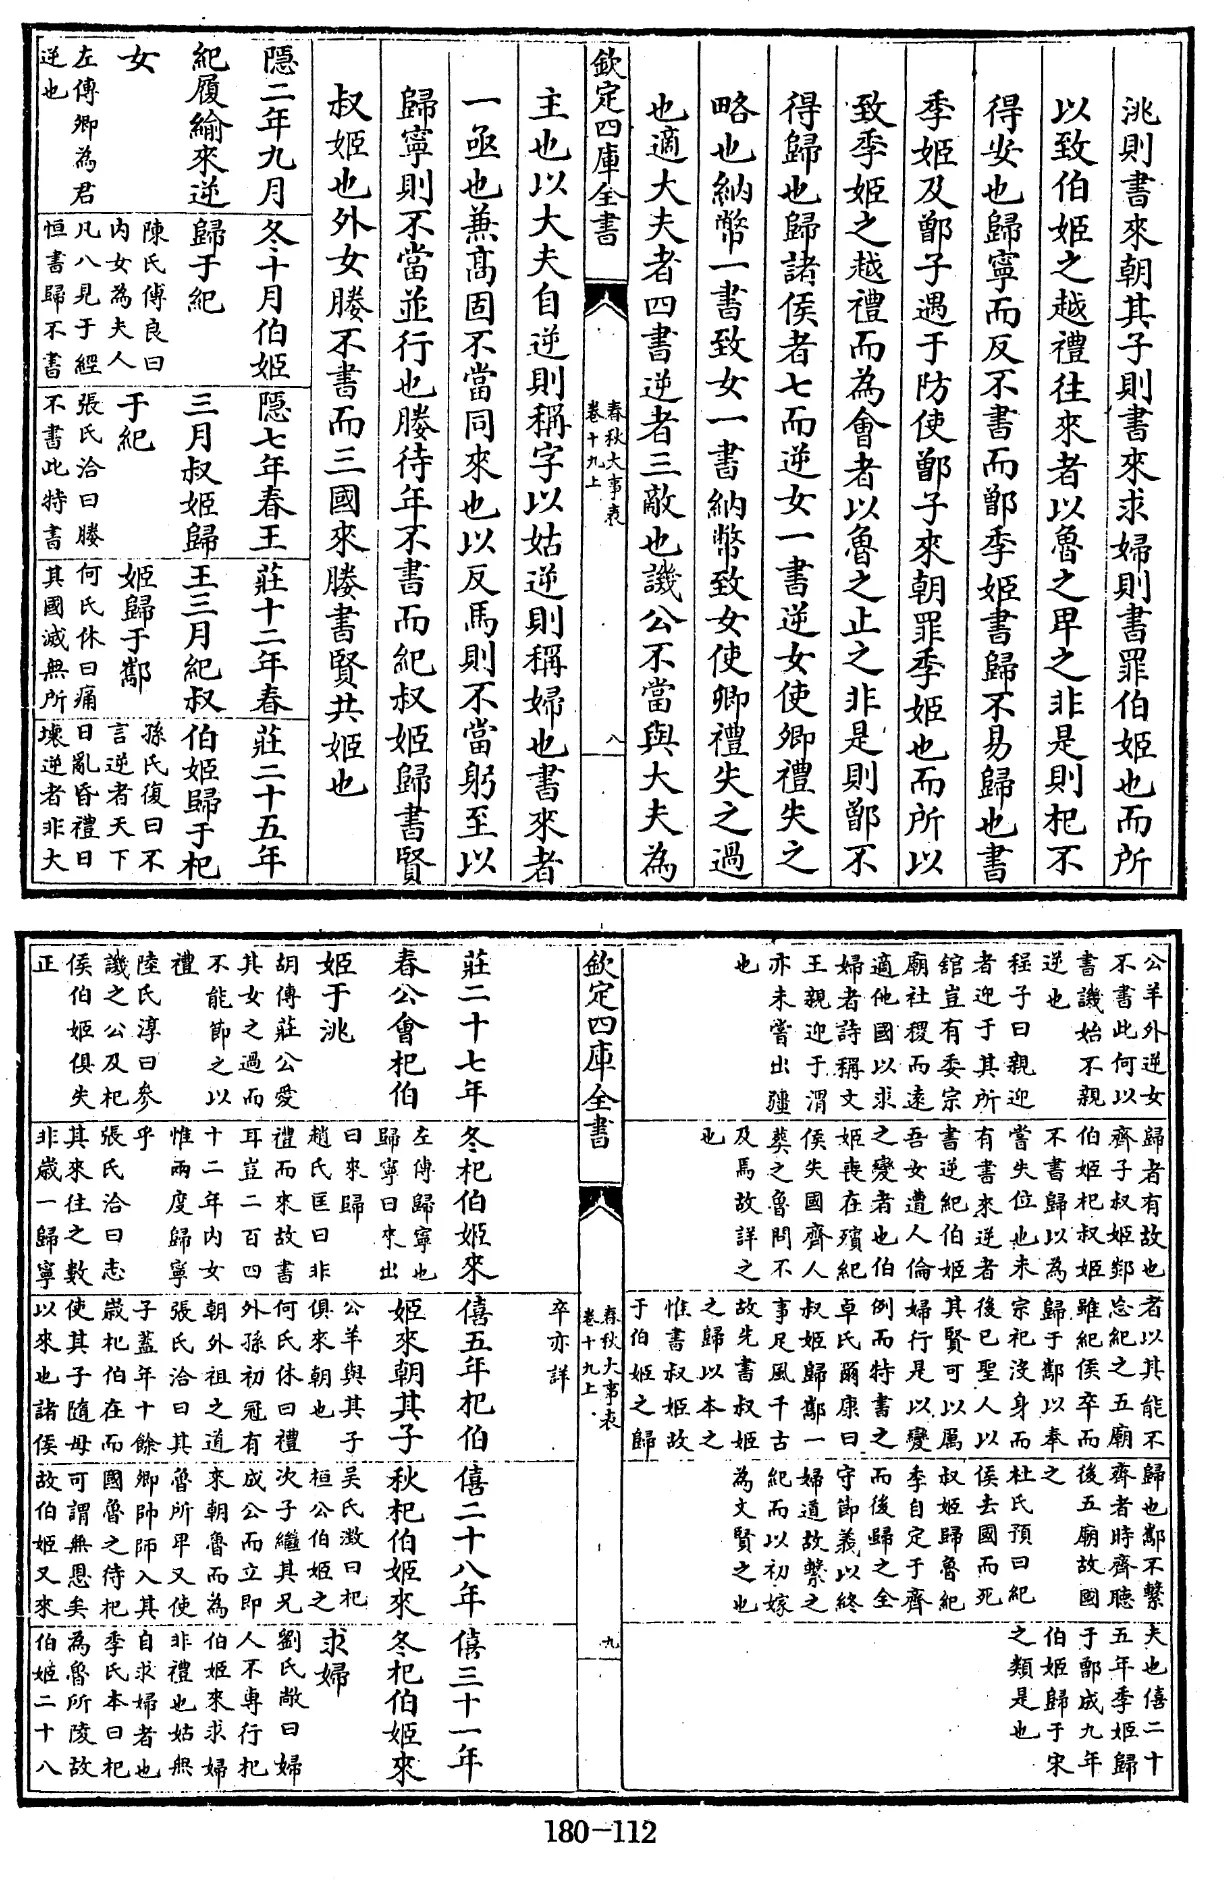 洮則書來朝其子則書來求婦則書罪伯姬也而所
以致伯姬之越禮往來者以魯之卑之非是則杞不
得安也歸寧而反不書而鄫季姬書歸不易歸也書
季姬及鄫子遇于防使鄫子來朝罪季姬也而所以
致季姬之越禮而為會者以魯之止之非是則鄫不
得歸也歸諸侯者七而逆女一書逆女使卿禮失之
略也納幣一書致女一書納幣致女使卿禮失之過
也適大夫者四書逆者三敵也譏公不當與大夫為
欽定四庫全書
春秋大事表
卷十九上
八
主也以大夫自逆則稱字以姑逆則稱婦也書來者
一亟也兼高固不當同來也以反馬則不當躬至以
歸寧則不當並行也媵待年不書而紀叔姬歸書賢
叔姬也外女媵不書而三國來媵書賢共姬也
隱二年九月
紀履緰來逆
女
左傳卿為君
逆也
冬十月伯姬
歸于紀
陳氏傅良曰
内女為夫人
凡八見于經
恒書歸不書
隱七年春王
三月叔姬歸
于紀
張氏洽曰媵
不書此特書
莊十二年春
王三月紀叔
姬歸于酅
何氏休曰痛
其國滅無所
莊二十五年
伯姬歸于杞
孫氏復曰不
言逆者天下
日亂昏禮日
壞逆者非大
公羊外逆女
不書此何以
書譏始不親
逆也
程子曰親迎
者迎于其所
舘豈有委宗
廟社稷而遠
適他國以求
婦者詩稱文
王親迎于渭
亦未嘗出疆
也
歸者有故也
齊子叔姬郯
伯姬杞叔姬
不書歸以為
嘗失位也未
有書來逆者
書逆紀伯姬
吾女遭人倫
之變者也伯
姬喪在殯紀
侯失國齊人
葬之魯問不
及焉故詳之
也
者以其能不
忘紀之五廟
雖紀侯卒而
歸于酅以奉
宗祀沒身而
後已聖人以
其賢可以厲
婦行是以變
例而特書之
卓氏爾康曰
叔姬歸酅一
事足風千古
故先書叔姬
之歸以本之
惟書叔姬故
于伯姬之歸
卒亦詳
歸也酅不繫
齊者時齊聽
後五廟故國
之
杜氏預曰紀
侯去國而死
叔姬歸魯紀
季自定于齊
而後歸之全
守節義以終
婦道故繫之
紀而以初嫁
為文賢之也
夫也僖二十
五年季姬歸
于鄫成九年
伯姬歸于宋
之類是也
欽定四庫全書
春秋大事表
卷十九上
九
莊二十七年
春公會杞伯
姬于洮
胡傳莊公愛
其女之過而
不能節之以
禮
陸氏淳曰參
譏之公及杞
侯伯姬俱失
正
冬杞伯姬來
左傳歸寧也
歸寧曰來出
曰來歸
趙氏匡曰非
禮而來故書
耳豈二百四
十二年内女
惟兩度歸寧
乎
張氏洽曰志
其來往之數
非歲一歸寧
僖五年杞伯
姬來朝其子
公羊與其子
俱來朝也
何氏休曰禮
外孫初冠有
朝外祖之道
張氏洽曰其
子蓋年十餘
歲杞伯在而
使其子隨母
以來也諸侯
僖二十八年
秋杞伯姬來
吴氏澂曰杞
桓公伯姬之
次子繼其兄
成公而立即
來朝魯而為
魯所卑又使
卿帥師入其
國魯之待杞
可謂無恩矣
故伯姬又來
僖三十一年
冬杞伯姬來
求婦
劉氏敞曰婦
人不專行杞
伯姬來求婦
非禮也姑無
自求婦者也
季氏本曰杞
為魯所陵故
伯姬二十八
180-112